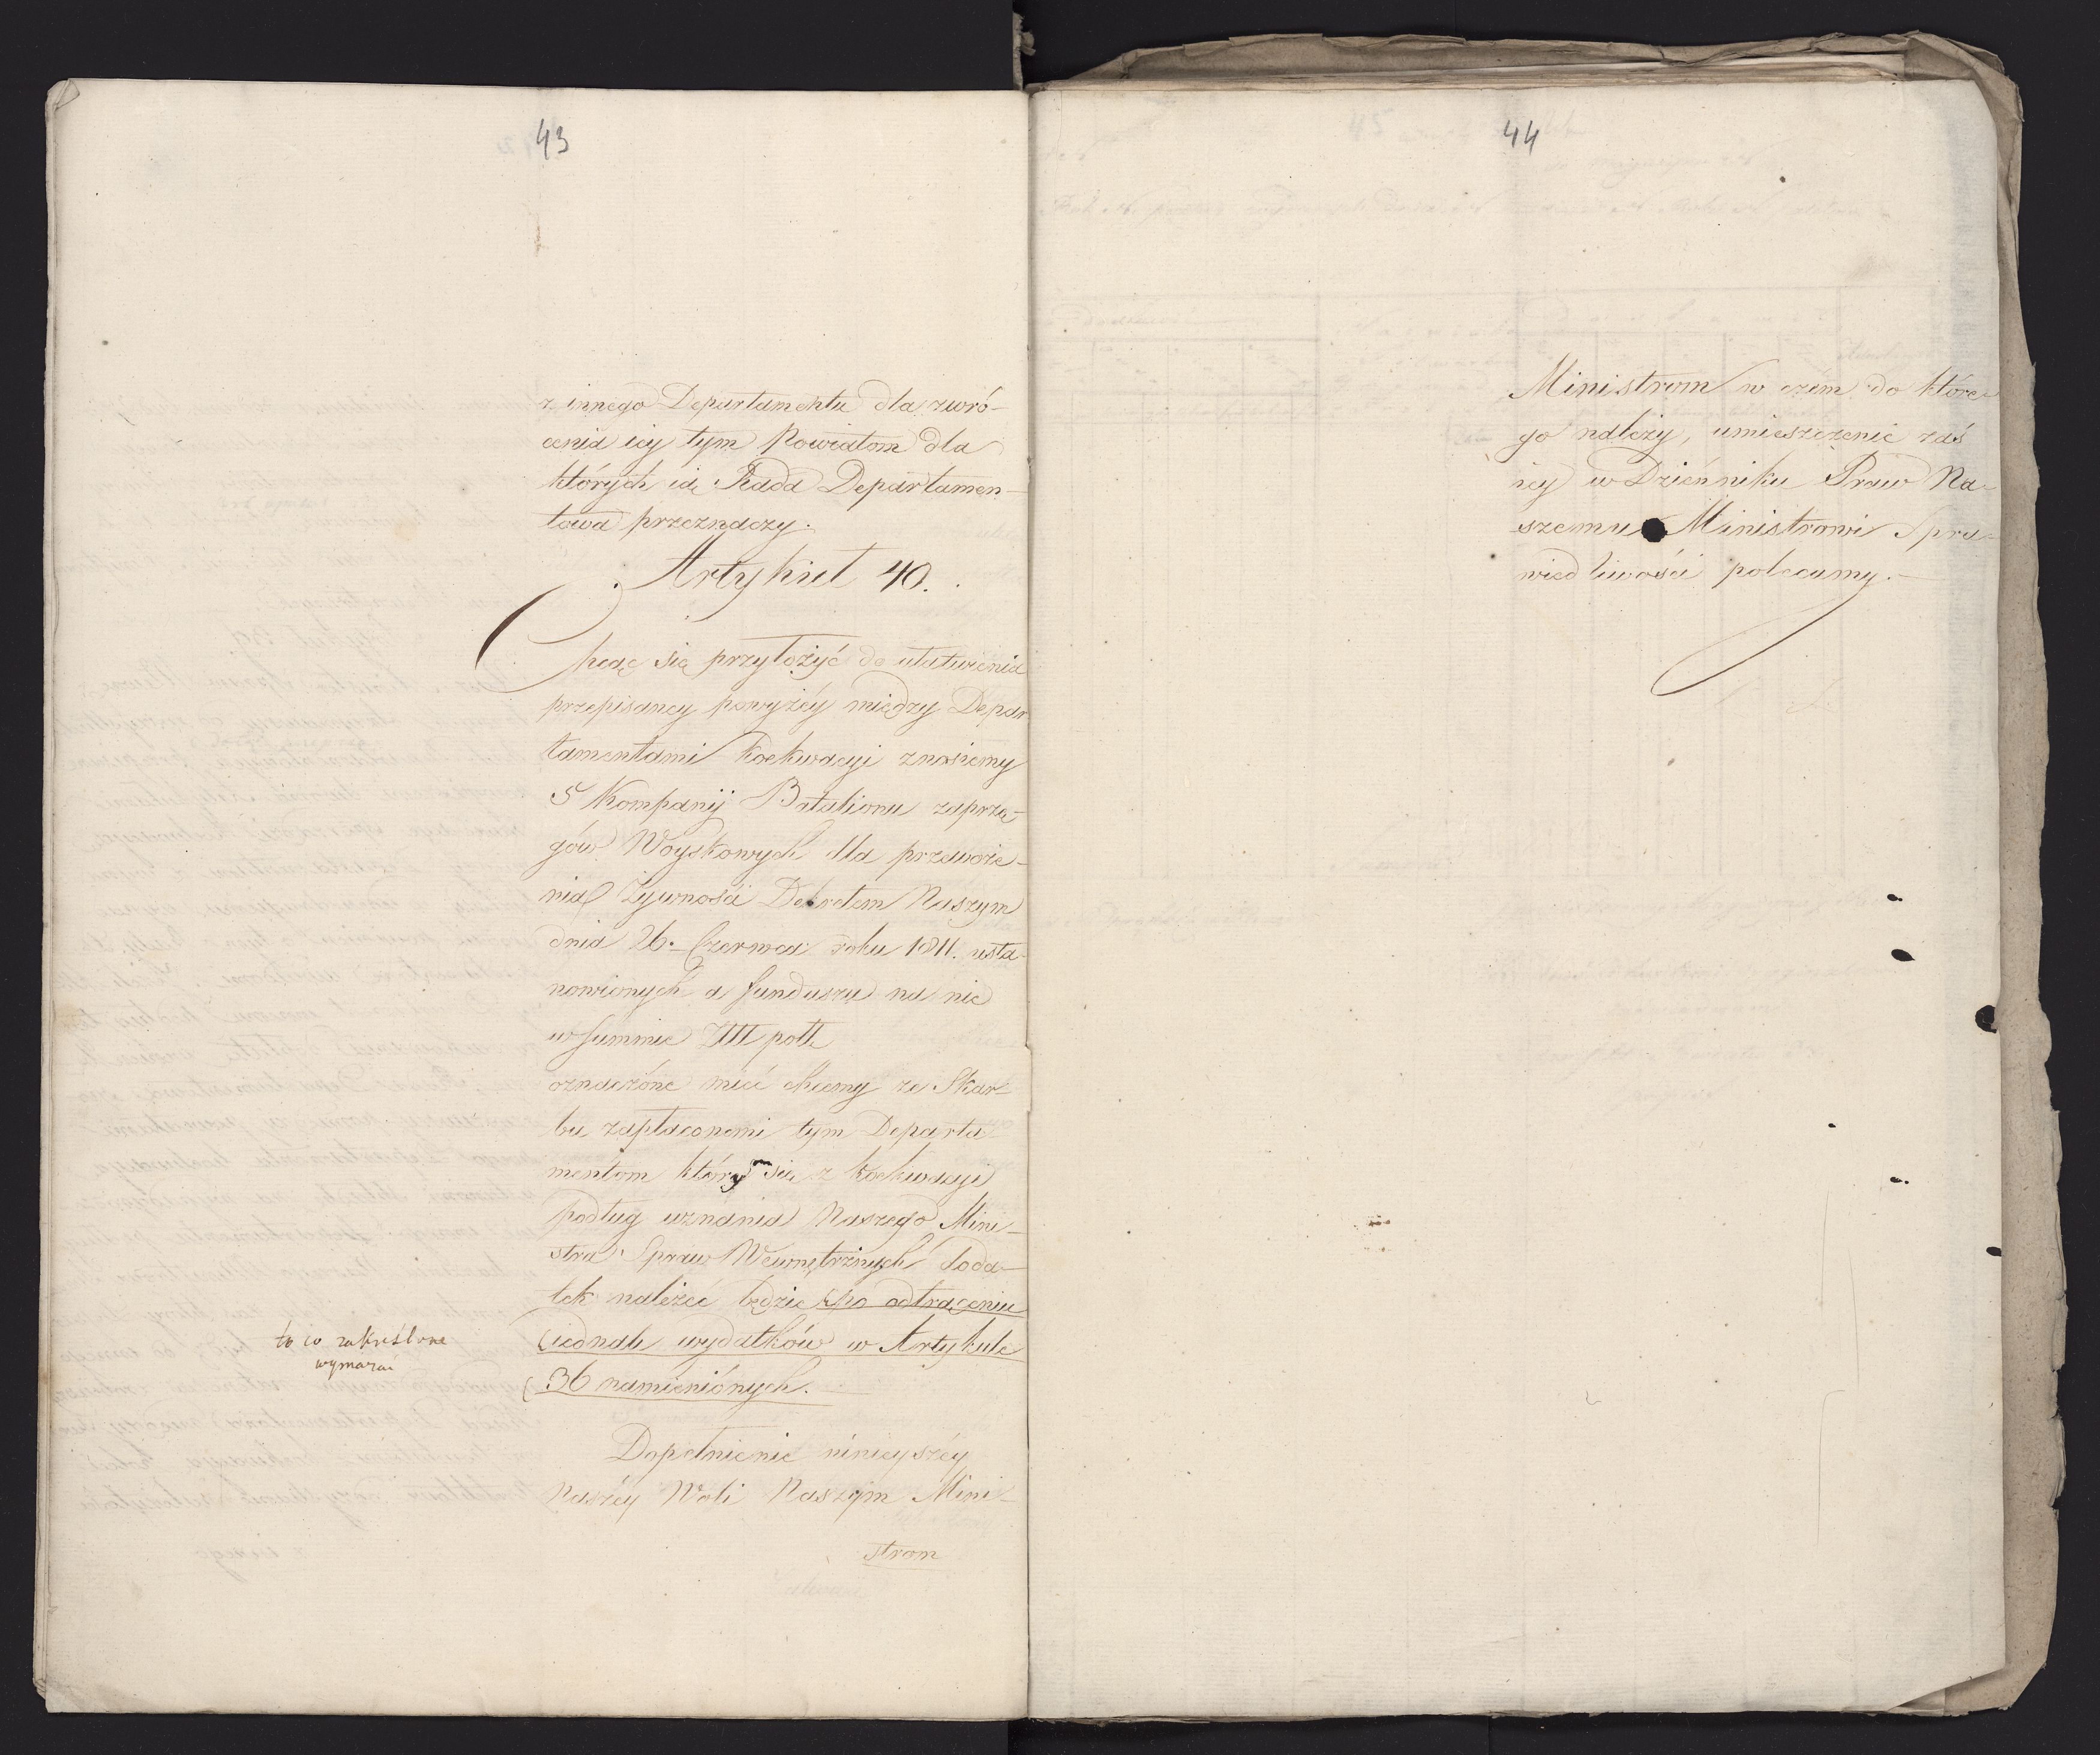 43
z innego Departamentu dla zwró-
cenia iey tym Powiatom dla
których ię Rada Departamen-
towa przeznaczy.
Artykuł 40.
Chcąc się przyłożyć do ułatwienia
przepisaney powyżéy między Depar
tamentami Koekwacyi znosiemy
5 Kompanij Batalionu zaprzę-
gów Woyskowych dla przewoże-
nia Żywności Dekretem Naszym
dnia 26. Czerwca roku 1811. usta-
nowionych a fundusze na nie
w Summie Złłł polk
oznaczóne mieć chcemy ze Skar-
bu zapłaconemi tym Departa-
mentom którym się z koekwacyi
podług uznania Naszego Mini-
stra Spraw Wewnętrznych doda-
tek należeć będzie (po odtrąceniu
(iednak wydatków w Artykule
(36 namieniónych.
to co zakreślone
wymazać
Dopełnienie ninieyszéy
Naszéy Woli Naszym Mini-
strom
44
Ministrom w czém do które-
go należy, umieszczenie zaś
iey w Dzienniku Praw Na-
szemu Ministrowi Spra-
wiedliwości polecamy.-